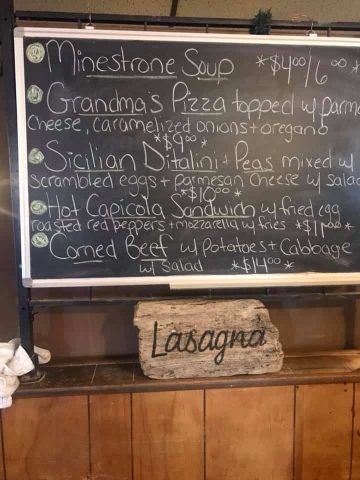 Minestrone Soup *$4⁰⁰/6⁰⁰*
Grandma's Pizza topped w/ parm
cheese, caramelized onions + oregano
*$9⁰⁰*
Sicilian Ditalini + Peas mixed w/
scrambled eggs + parmesan cheese w/ salad
*$10⁰⁰*
Hot Capicola Sandwich w/ fried egg
roasted red peppers + mozzarella w/ fries *$11⁰⁰*
Corned Beef w/ Potatoes + Cabbage
w/ salad *$14⁰⁰*
Lasagna